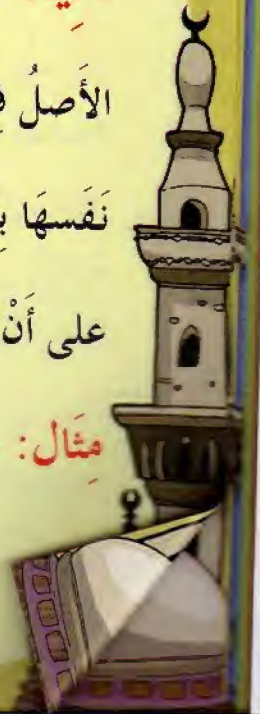 الأَصلُ
نَفَسهَا
على أَنْ
مِثَال: